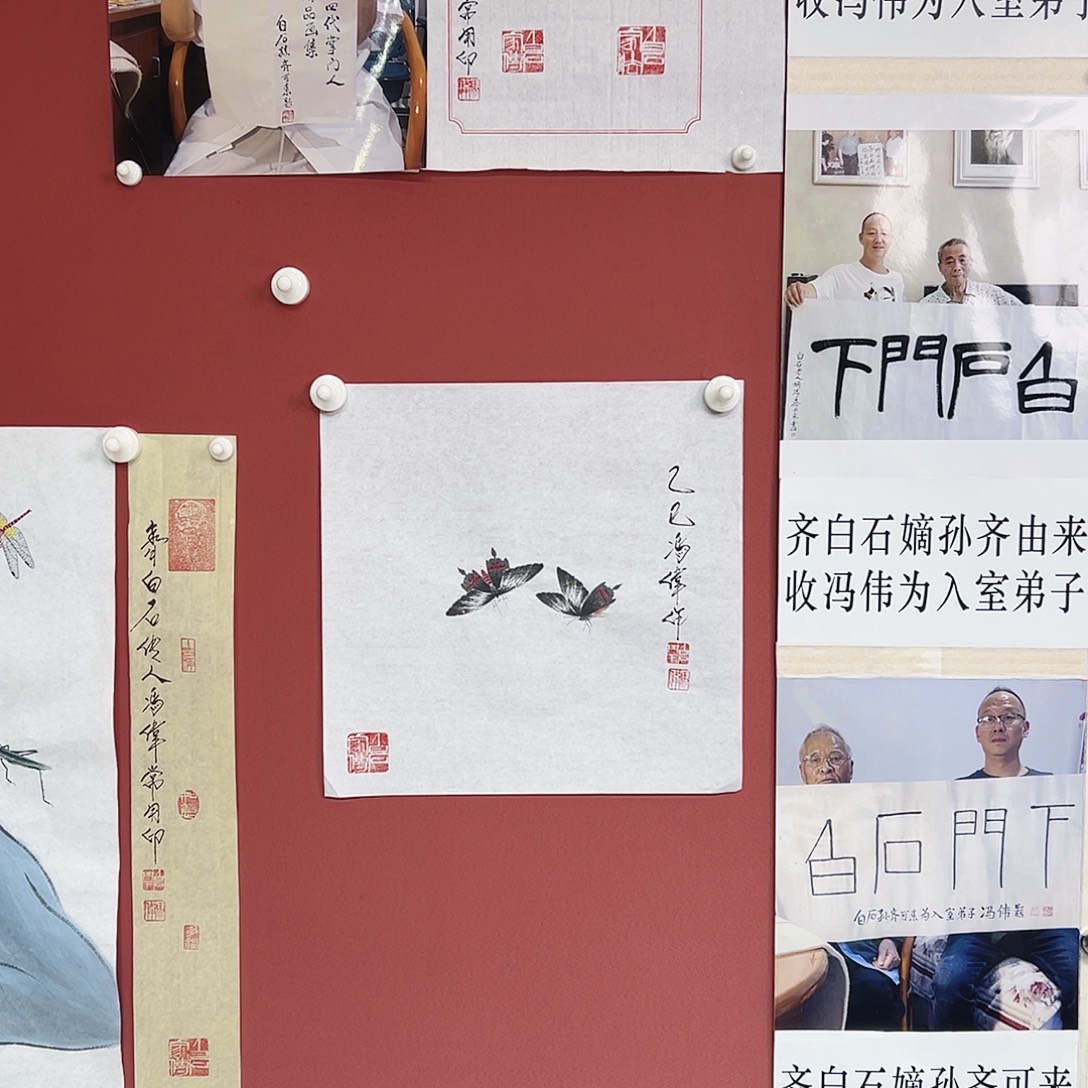 四代掌门人
品画集
白石孙齐可来题
常用印
收冯伟为入室弟子
白石門下
齐白石嫡孙齐由来
收冯伟为入室弟子
乙巳馮偉作
齊白石传人馮偉常用印
白石門下
白石孙齐可来为入室弟子冯伟题
齐白石嫡孙齐可来